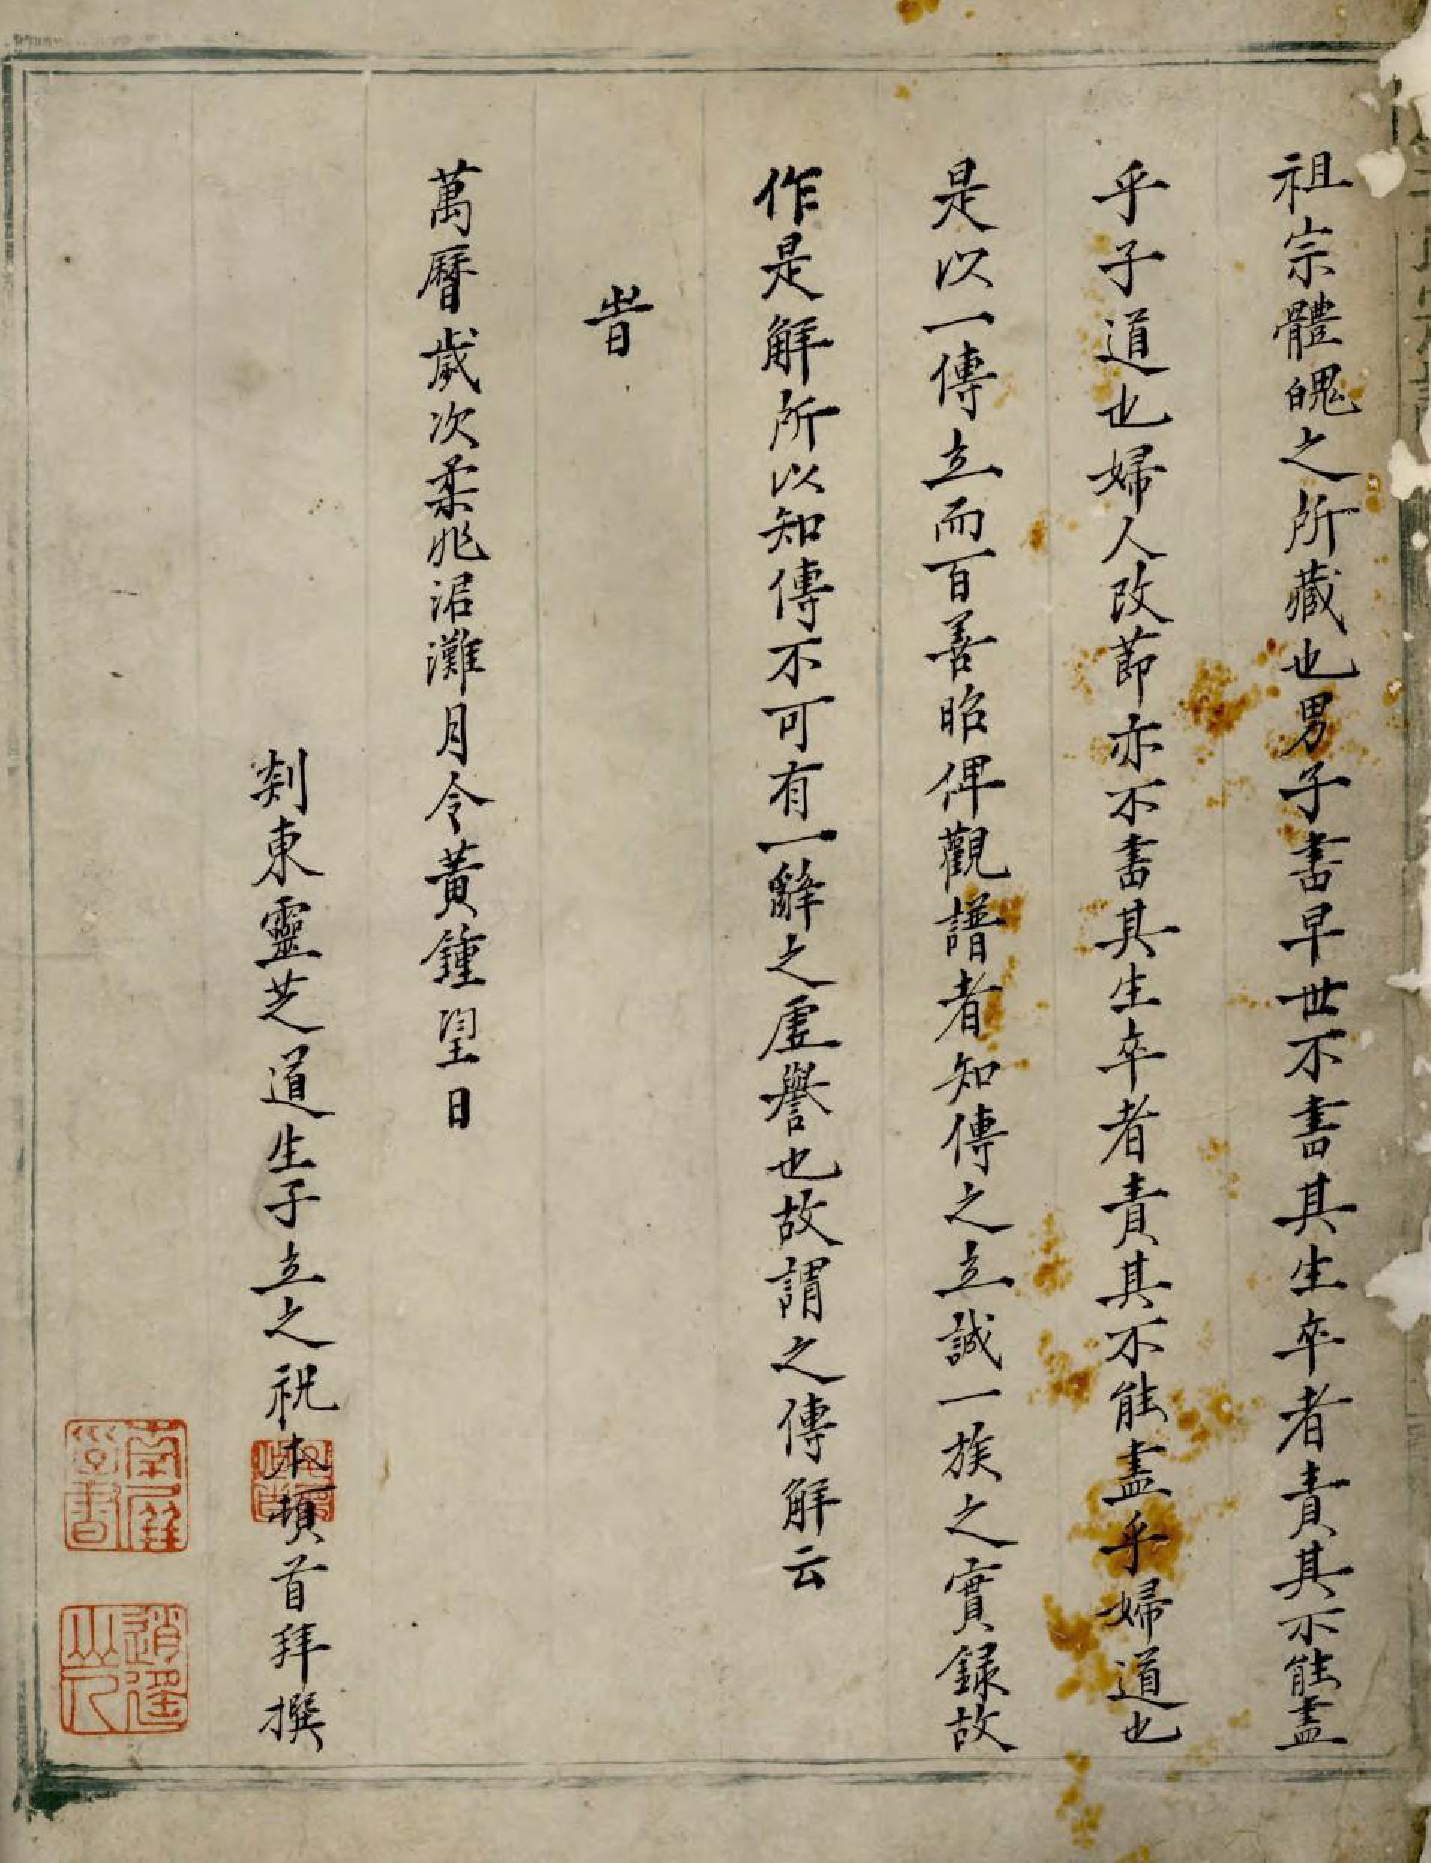 祖宗體魄之所藏也男子書早世不書其生卒者責其不能盡
乎子道也婦人改莭亦不書其生卒者責其不能盡乎婦道也
是以一傳立而百善昭俾觀譜者知傳之立誠一族之實録故
作是解所以知傳不可有一辭之虛譽也故謂之傳解云
旹
萬曆歲次柔兆涒灘月令黃鍾望日
剡東靈芝道生子立之祝本頓首拜撰
南屏
堂書
逍遥
山人